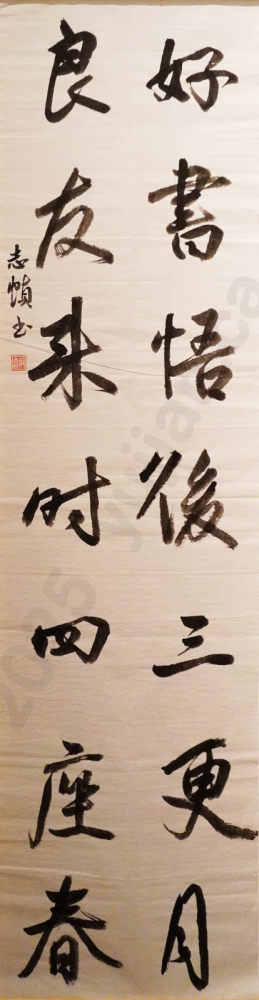 好書悟後三更月
良友来时四座春
志愼书